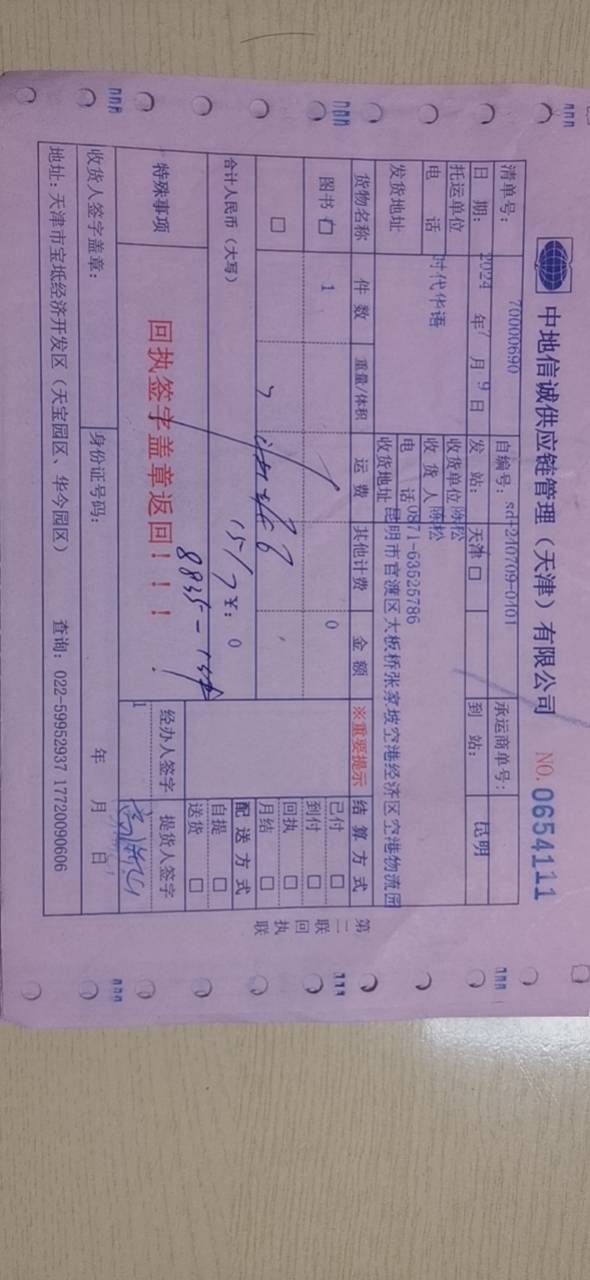 中地信诚供应链管理（天津）有限公司 NO. 0654111
清单号： 70000690 自编号： sd-240709-0401 承运商单号：
日 期： 2024 年 7 月 9 日 发 站： 天津 到 站： 昆明
托运单位 时代华语 收货单位
电 话 收 货 人
电 话 0871-63525786
发货地址 收货地址 昆明市官渡区大板桥张家坡空港经济区空港物流园
货物名称 件 数 重量/体积 运 费 其他计费 金 额 ※重要提示 结 算 方 式
图书 1 0 已付 □
到付 □
□ 回执 □
月结 □
合计人民币（大写） ¥： 0 配 送 方 式
自提 □
送货 □
特殊事项 回执签字盖章返回！！！ 经办人签字 提货人签字
1
收货人签字盖章： 身份证号码： 年 月 日
地址：天津市宝坻经济开发区（天宝园区、华今园区） 查询： 022-59952937 17720090606
第二联 回执联